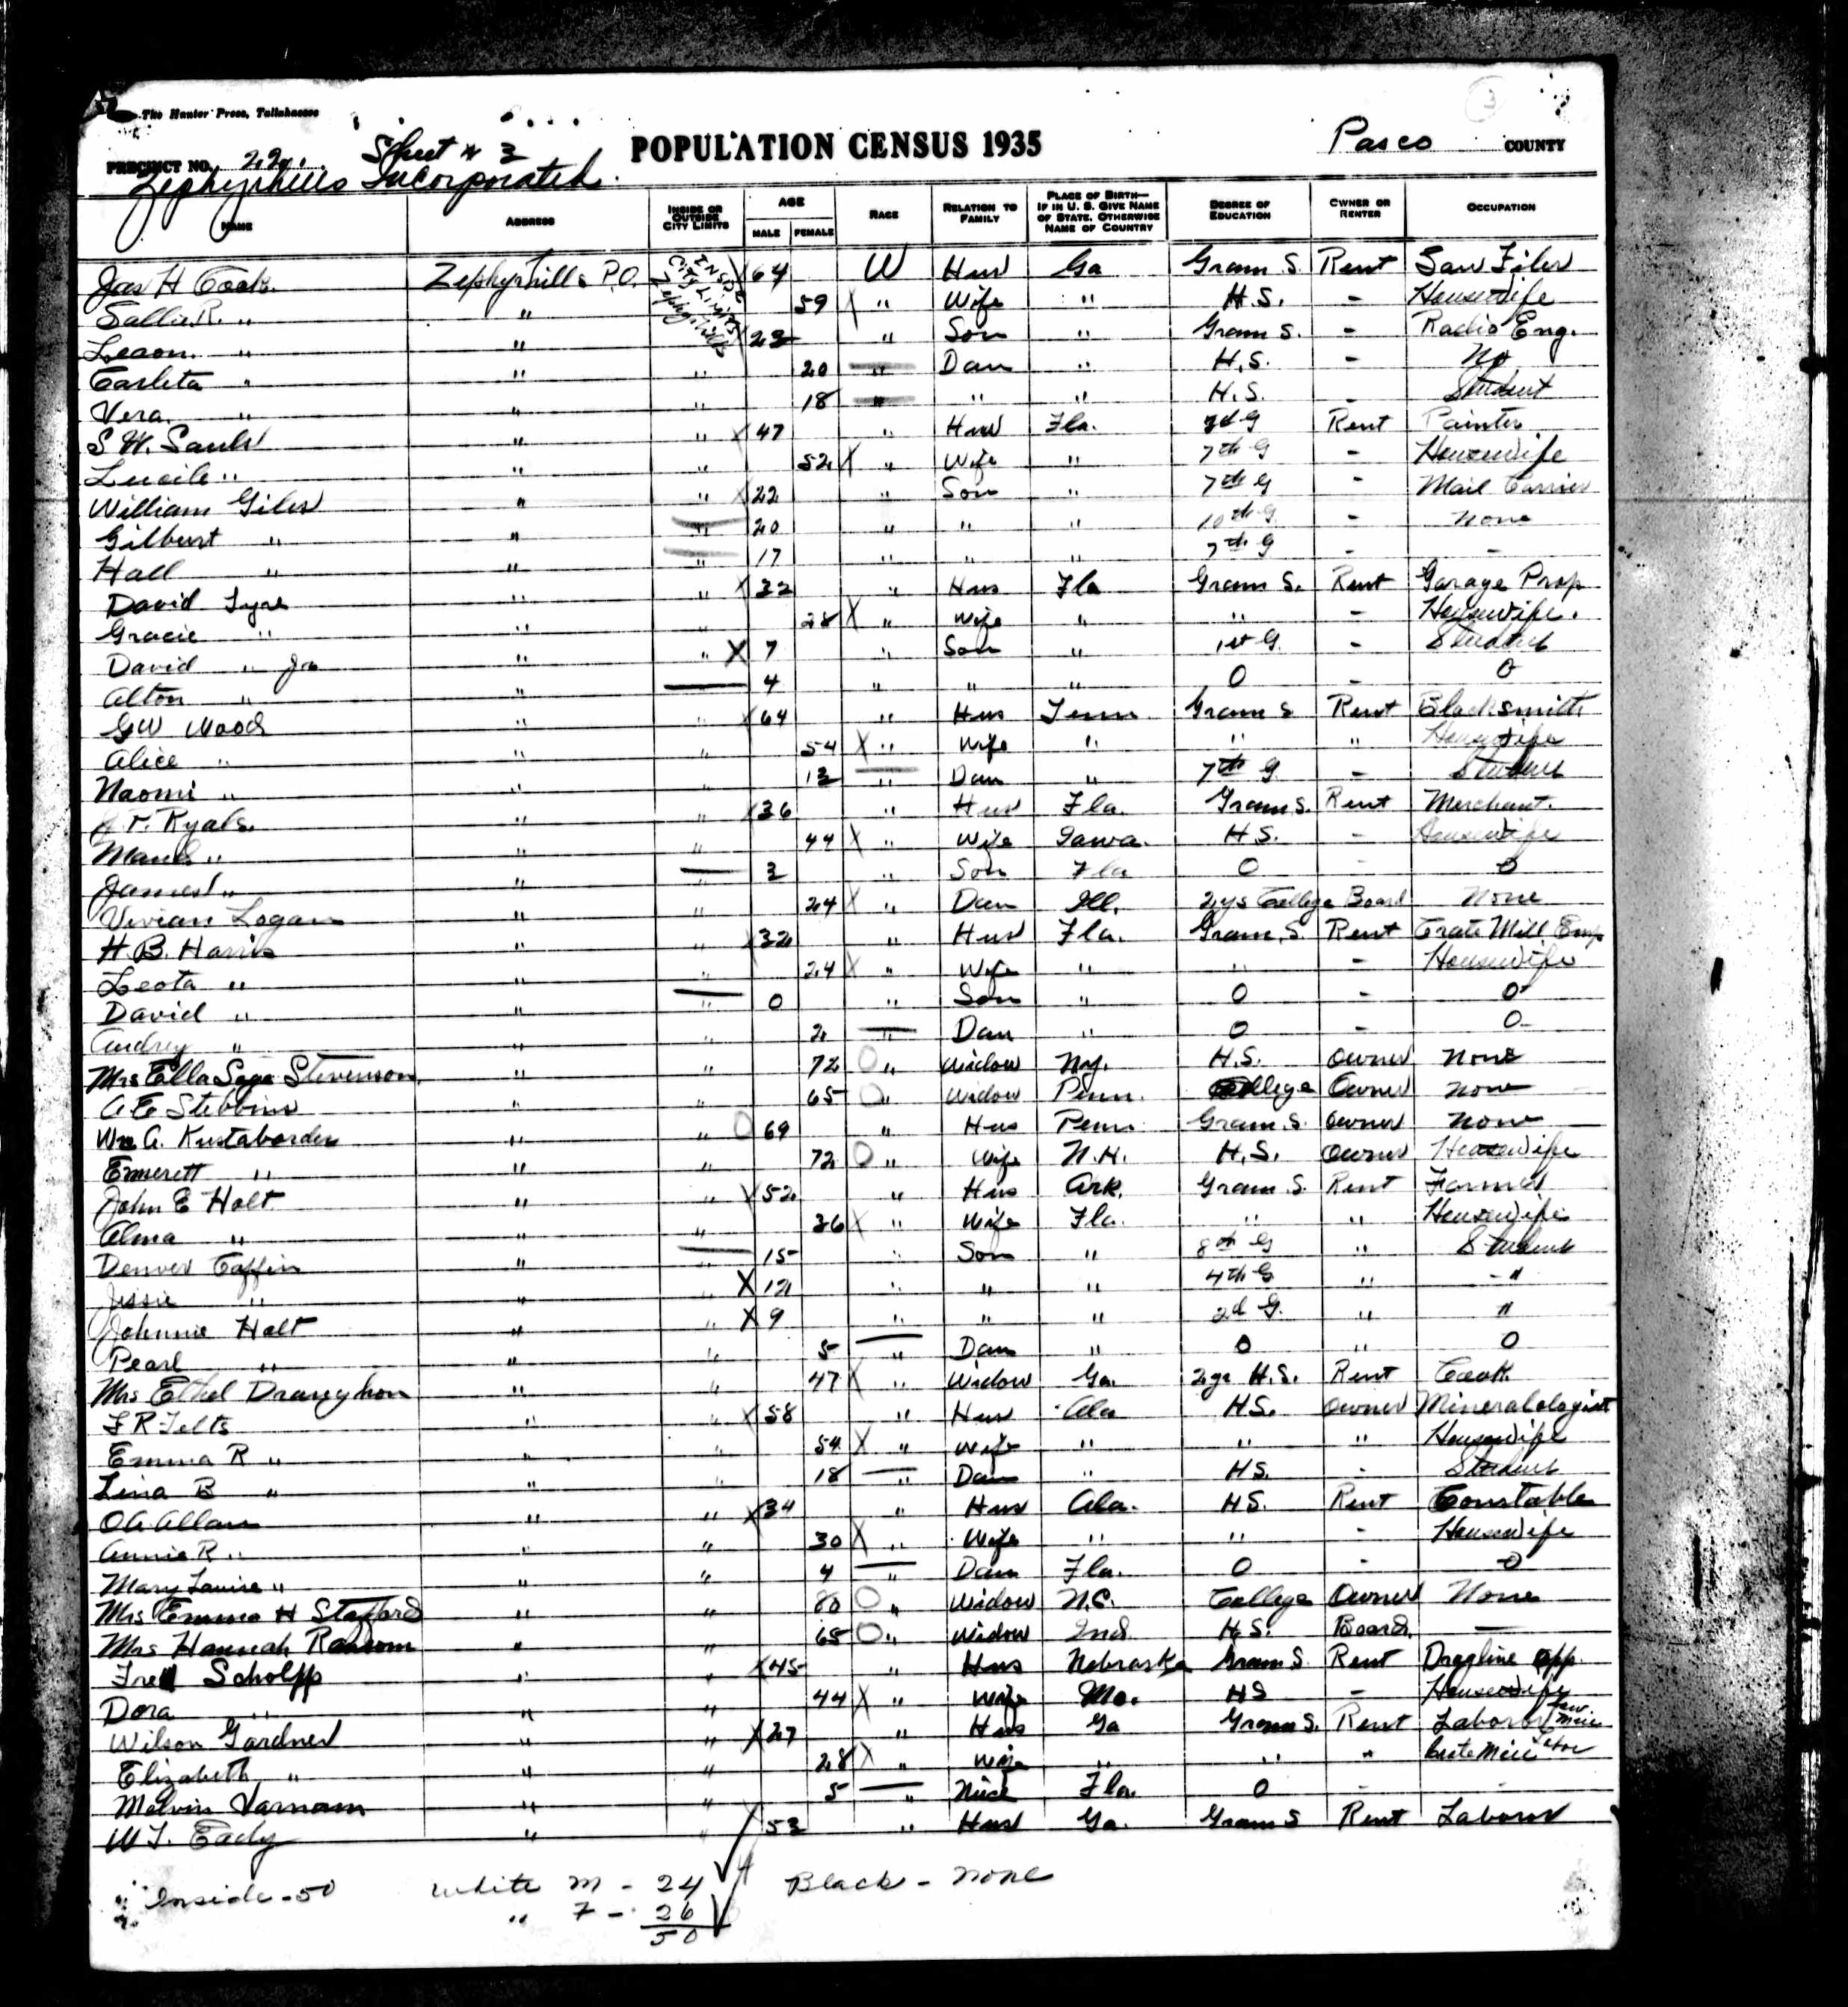 The Hunter Press, Tallahassee
PRECINCT NO. 22. Sheet # 3 POPULATION CENSUS 1935 Pasco COUNTY
Zephyrhills Incorporated.
NAME ADDRESS INSIDE OR OUTSIDE CITY LIMITS AGE MALE FEMALE RACE RELATION TO FAMILY PLACE OF BIRTH— IF IN U. S. GIVE NAME OF STATE. OTHERWISE NAME OF COUNTRY DEGREE OF EDUCATION OWNER OR RENTER OCCUPATION
Jas H Cook Zephyrhills P.O. Inside City Limits Zephyrhills X 64 W Hus Ga Gram S. Rent Saw Filer
Sallie R. " " 59 X " Wife " H.S. - Housewife
Leaon " " X 23 " Son " Gram S. - Radio Eng.
Carleta " " " 20 " Dau " H.S. - No
Vera " " " 18 " " " H.S. - Student
S W. Sauls " " X 47 " Hus Fla. 3d G Rent Painter
Lucile " " " 52 X " Wife " 7th G - Housewife
William Giles " " X 22 " Son " 7th G - Mail Carrier
Gilbert " " " 20 " " " 10th G - None
Hall " " " 17 " " " 7th G - -
David Tyre " " X 32 " Hus Fla Gram S. Rent Garage Prop
Gracie " " " 28 X " Wife " " - Housewife.
David " Jr " " X 7 " Son " 1st G. - Student
Alton " " " 4 " " " 0 - 0
G W Wood " " X 64 " Hus Tenn Gram S Rent Blacksmith
Alice " " " 54 X " Wife " " " Housewife
Naomi " " " 13 " Dau " 7th G. - Student
Ryals. " " X 36 " Hus Fla. Gram S. Rent Merchant.
Maud " " " 44 X " Wife Iowa. H S. - Housewife
James " " " 3 " Son Fla 0 - 0
Vivian Logan " " 24 X " Dau Ill. 2 ys College Board None
H. B. Harris " " X 32 " Hus Fla. Gram. S. Rent Crate Mill Emp
Leota " " " 24 X " Wife " " - Housewife
David " " " 0 " Son " 0 - 0
Audrey " " " 2 " Dau " 0 - 0
Mrs Ella Sage Stevenson " " 72 O " Widow N.Y. H.S. Owner None
A E Stebbins " " 65 O " Widow Penn. College Owner None
Wm A. Kustaborder " " O 69 " Hus Penn Gram. S. Owner None
Emerett " " " 72 O " Wife N.H. H.S. Owner Housewife
John E Holt " " X 52 " Hus Ark. Gram. S. Rent Farmer
Alma " " " 36 X " Wife Fla. " " Housewife
Denver Caffin " " 15 " Son " 8th G " Student
Jessie " " " X 12 " " " 4th G " - "
Johnnie Holt " " X 9 " " " 2d G. " "
Pearl " " " 5 " Dau " 0 " 0
Mrs Ethel Draughon " " 47 X " Widow Ga. 2 yr H.S. Rent Cook
F R Felts " " X 58 " Hus Ala HS. Owner Mineralologist
Emma R " " " 54 X " Wife " " " Housewife
Lina B " " " 18 " Dau " HS. - Student
O A Allan " " X 34 " Hus Ala. HS. Rent Constable
Annie R " " " 30 X " Wife " " - Housewife
Mary Louise " " " 4 " Dau Fla. 0 - 0
Mrs Emma H Stafford " " 80 O " Widow N.C. College Owner None
Mrs Hannah Ransom " " 65 O " Widow Ind. H.S. Board. —
Fred Scholpp " " X 45 " Hus Nebraska Gram S. Rent Dragline opp.
Dora " " " 44 X " Wife Mo. HS - Housewife
Wilson Gardner " " X 27 " Hus Ga Gram S. Rent Laborer Saw Mill
Elizabeth " " " 28 X " Wife " " " Crate Mill Labor
Melvin Varnam " " 5 " Niece Fla. 0 - -
W T. Eady " " 53 " Hus Ga. Gram S Rent Laborer
Inside - 50 White M - 24 Black - None
" F - 26
50